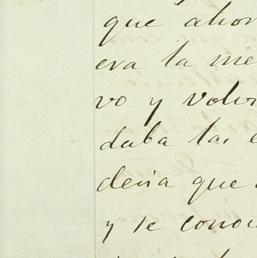 que ahor
era la me
vo y volv
daba las e
decia que
y te conoc